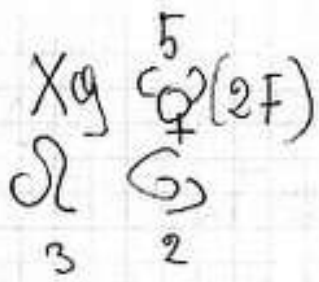 5
Xg ☿ (2F)
♌ ♋
3 2